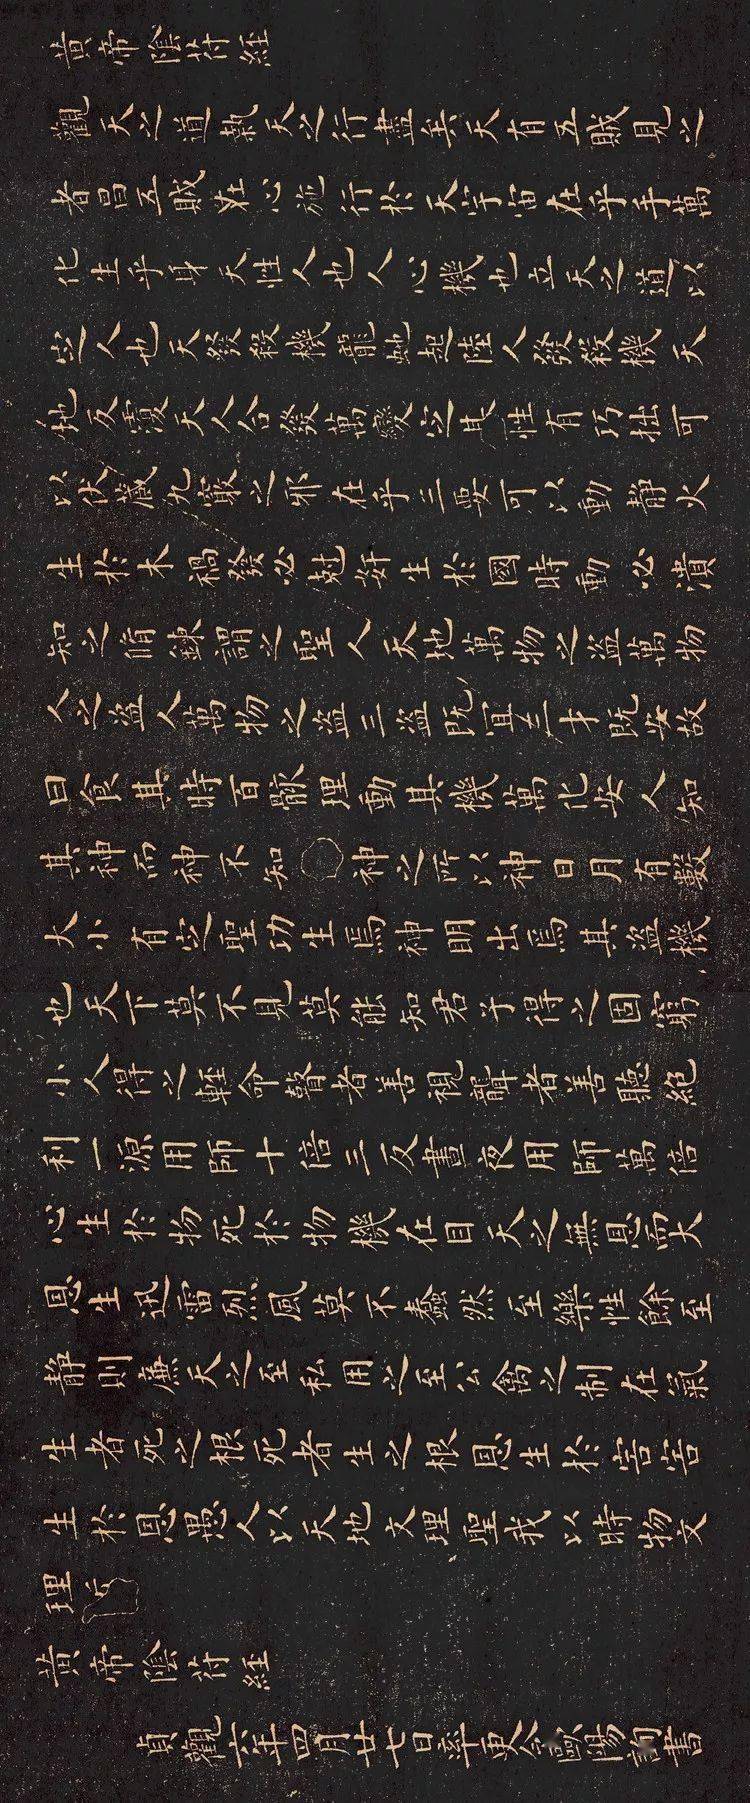 黃帝陰符經
觀天之道執天之行盡矣天有五賊見之
者昌五賊在心施行於天宇宙在乎手萬
化生乎身天性人也人心機也立天之道以
定人也天發殺機龍虵起陸人發殺機天
地反覆天人合發萬變定其性有巧拙可
以伏藏九竅之邪在乎三要可以動靜火
生於木禍發必尅奸生於國時動必潰
知之脩鍊謂之聖人天地萬物之盜萬物
人之盜人萬物之盜三盜既宜三才既安故
曰食其時百骸理動其機萬化安人知
其神而神不知神之所以神日月有數
大小有定聖功生焉神明出焉其盜機
也天下莫不見莫能知君子得之固窮
小人得之輕命瞽者善視聾者善聽絕
利一源用師十倍三反晝夜用師萬倍
心生於物死於物機在目天之無恩而大
恩生迅雷烈風莫不蠢然至樂性餘至
靜則廉天之至私用之至公禽之制在氣
生者死之根死者生之根恩生於害害
生於恩愚人以天地文理聖我以時物文
理
黃帝陰符經
貞觀六年四月廿七日率更令歐陽詢書